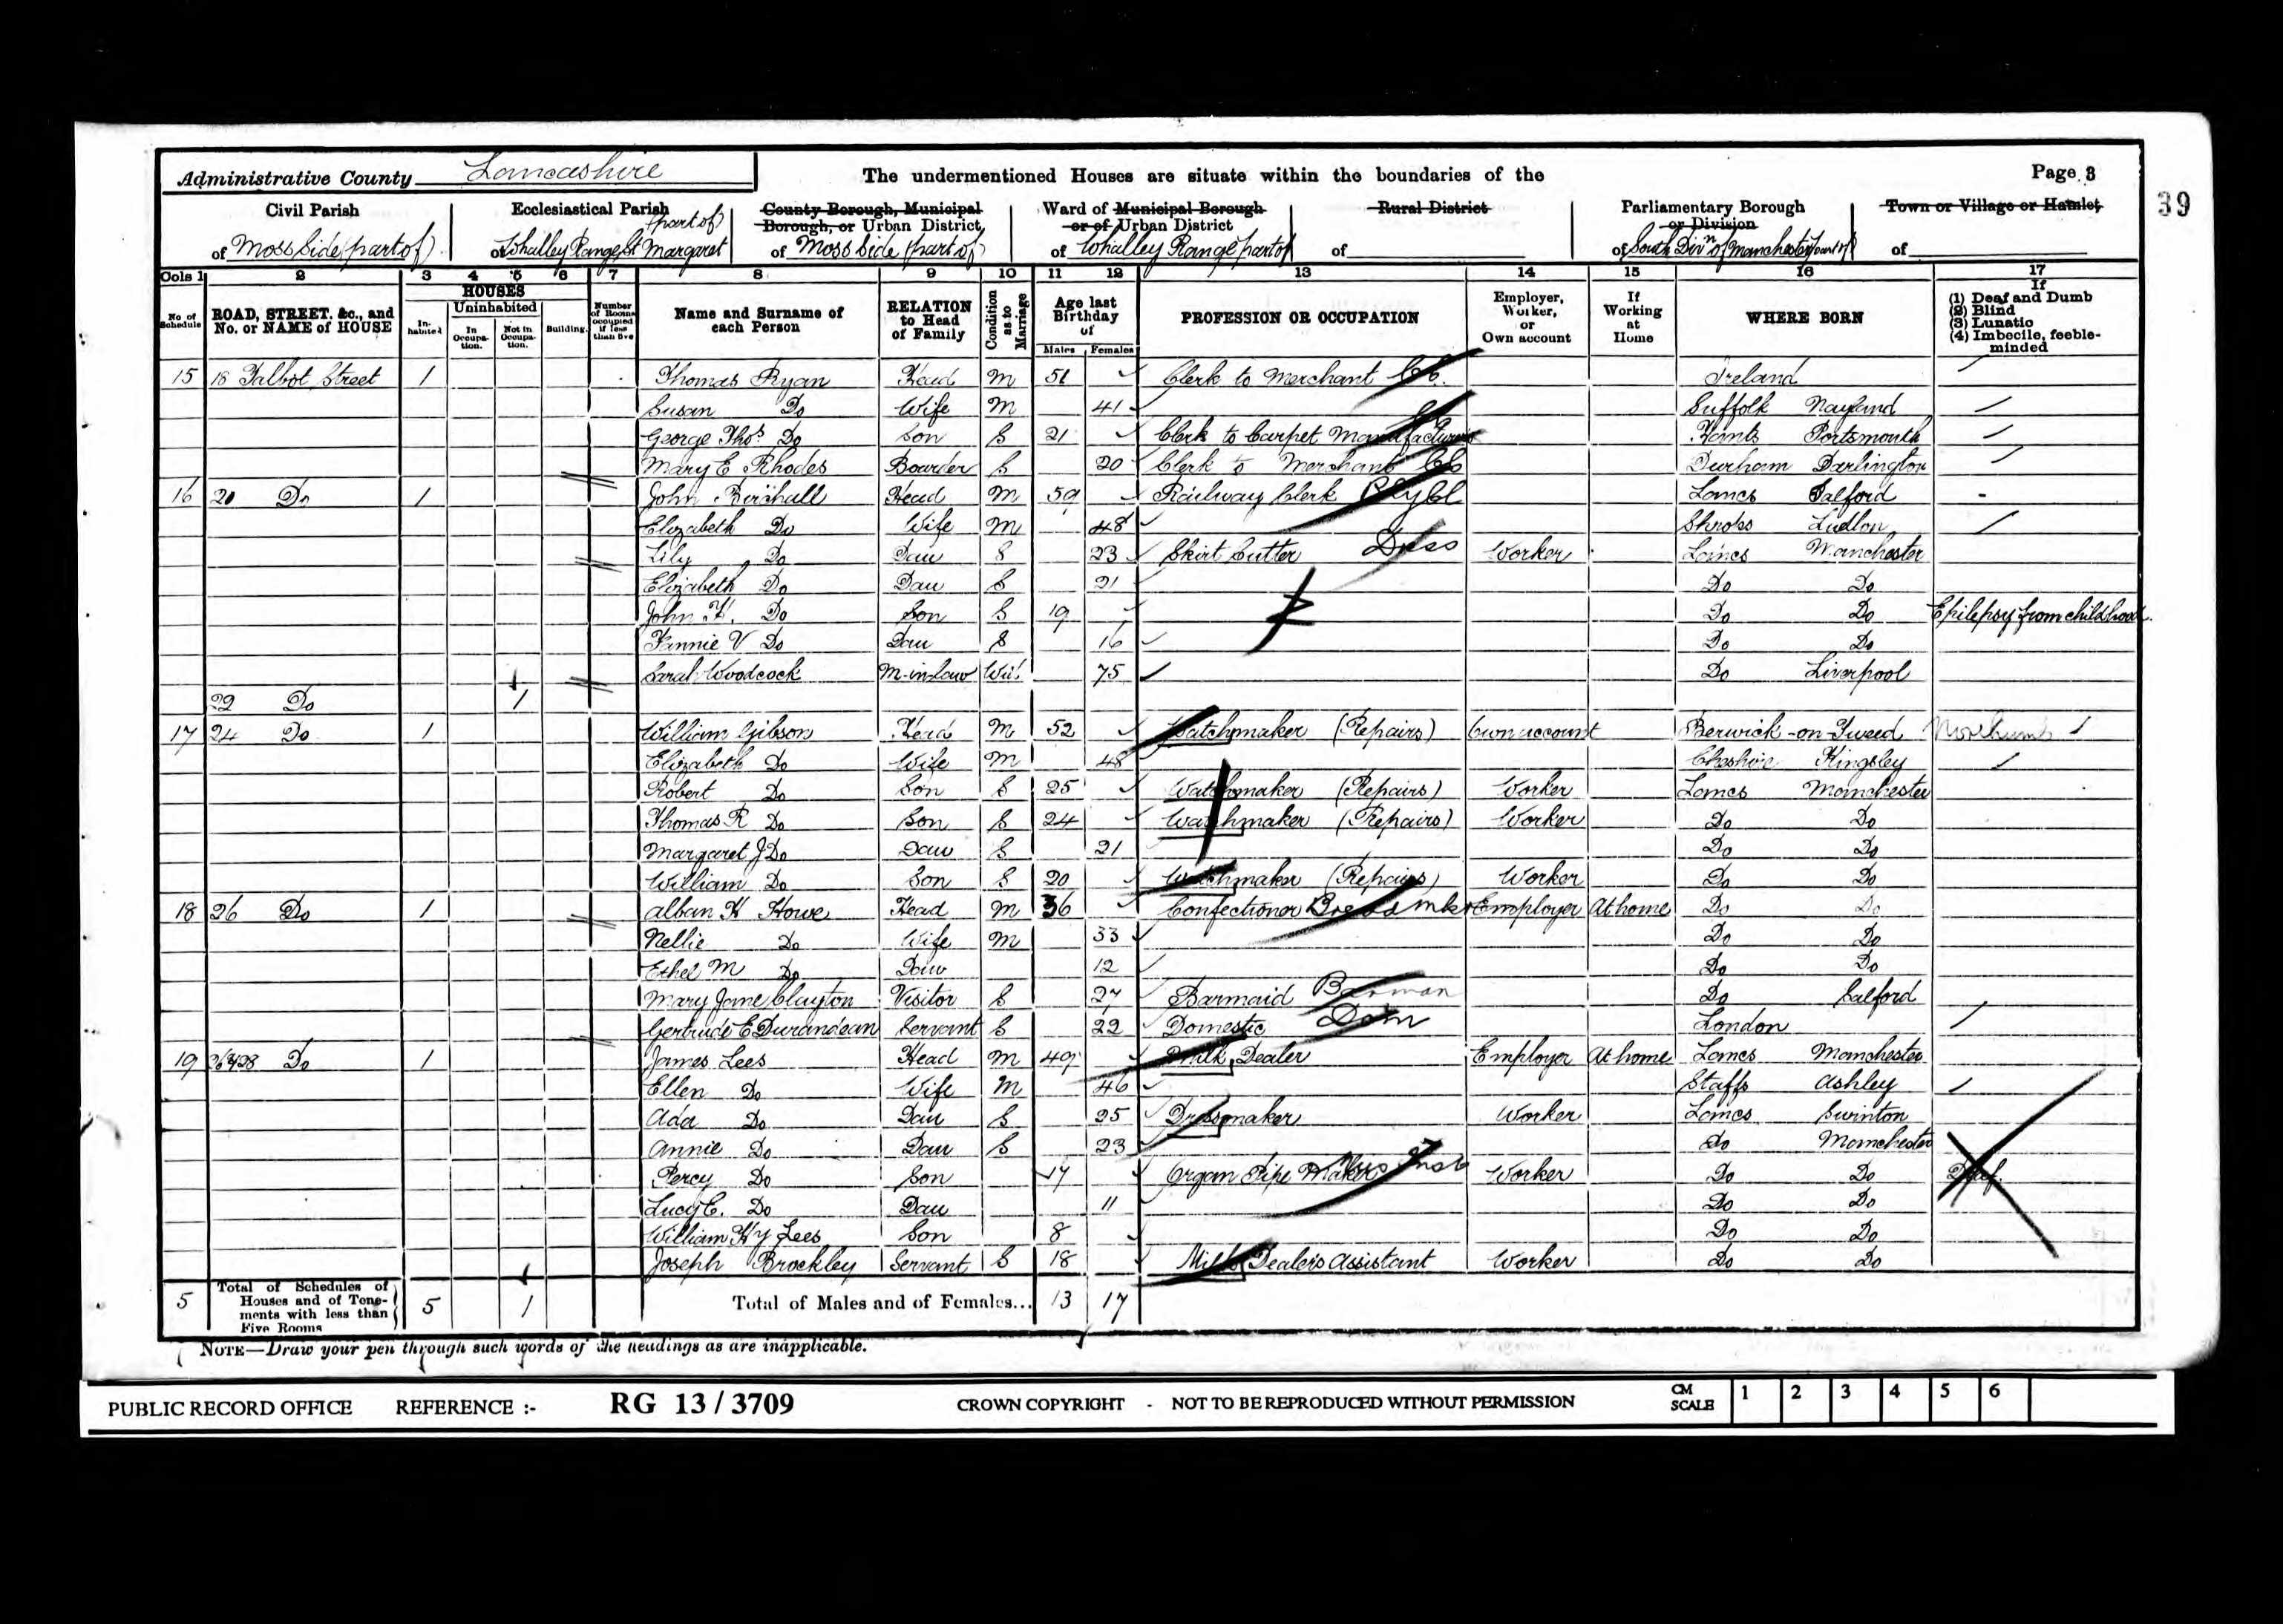 Administrative County Lancashire The undermentioned Houses are situate within the boundaries of the Page 3
39
Civil Parish Ecclesiastical Parish County Borough, Municipal Borough, or Urban District Ward of Municipal Borough or of Urban District Rural District Parliamentary Borough or Division Town or Village or Hamlet
of Moss Side (part of) of Whalley Range St Margaret (part of) of Moss Side (part of) of Whalley Range (part of) of of South Divn of Manchester (part of) of
Cols 1 2 3 4 5 6 7 8 9 10 11 12 13 14 15 16 17
No of Schedule ROAD, STREET, &c., and No. or NAME of HOUSE HOUSES Inhabited Uninhabited In Occupation. Not in Occupation. Building. Number of Rooms occupied if less than five Name and Surname of each Person RELATION to Head of Family Condition as to Marriage Age last Birthday of Males Females PROFESSION OR OCCUPATION Employer, Worker, or Own account If Working at Home WHERE BORN If (1) Deaf and Dumb (2) Blind (3) Lunatic (4) Imbecile, feeble-minded
15 18 Talbot Street 1 Thomas Ryan Head M 51 Clerk to Merchant Ireland
Susan Do Wife M 41 Suffolk Nayland
George Thos. Do Son S 21 Clerk to Carpet Manufacturers Hants Portsmouth
Mary E Rhodes Boarder S 20 Clerk to Merchant Durham Darlington
16 20 Do 1 John Birshall Head M 59 Railway Clerk Lancs Salford
Elizabeth Do Wife M 48 Shrops Ludlon
Lily Do Dau S 23 Skirt Cutter Dress Worker Lancs Manchester
Elizabeth Do Dau S 21 Do Do
John H. Do Son S 19 Do Do Epilepsy from childhood.
Fannie V Do Dau S 16 Do Do
Sarah Woodcock M-in-law Wid. 75 Do Liverpool
22 Do 1
17 24 Do 1 William Gibson Head M 52 Watchmaker (Repairs) Own account Berwick-on-Tweed Northumb
Elizabeth Do Wife M 48 Cheshire Kingsley
Robert Do Son S 25 Watchmaker (Repairs) Worker Lancs Manchester
Thomas R Do Son S 24 Watchmaker (Repairs) Worker Do Do
Margaret J Do Dau S 21 Do Do
William Do Son S 20 Watchmaker (Repairs) Worker Do Do
18 26 Do 1 Alban H Howe Head M 36 Confectioner Employer At home Do Do
Nellie Do Wife M 33 Do Do
Ethel M Do Dau 12 Do Do
Mary Jane Clayton Visitor S 27 Barmaid Barman Do Salford
Gertrude E Durandean Servant S 22 Domestic Dom London
19 Do 1 James Lees Head M 49 Milk Dealer Employer At home Lancs Manchester
Ellen Do Wife M 46 Staffs Ashley
Ada Do Dau S 25 Dressmaker Worker Lancs Swinton
Annie Do Dau S 23 Do Manchester
Percy Do Son 17 Organ Pipe Maker Mus Inst Worker Do Do Deaf.
Lucy E. Do Dau 11 Do Do
William Hy Lees Son 8 Do Do
Joseph Brockley Servant S 18 Milk Dealers Assistant Worker Do Do
5 Total of Schedules of Houses and of Tenements with less than Five Rooms 5 1 Total of Males and of Females... 13 17
NOTE—Draw your pen through such words of the headings as are inapplicable.
PUBLIC RECORD OFFICE REFERENCE :- RG 13 / 3709 CROWN COPYRIGHT - NOT TO BE REPRODUCED WITHOUT PERMISSION CM SCALE 1 2 3 4 5 6